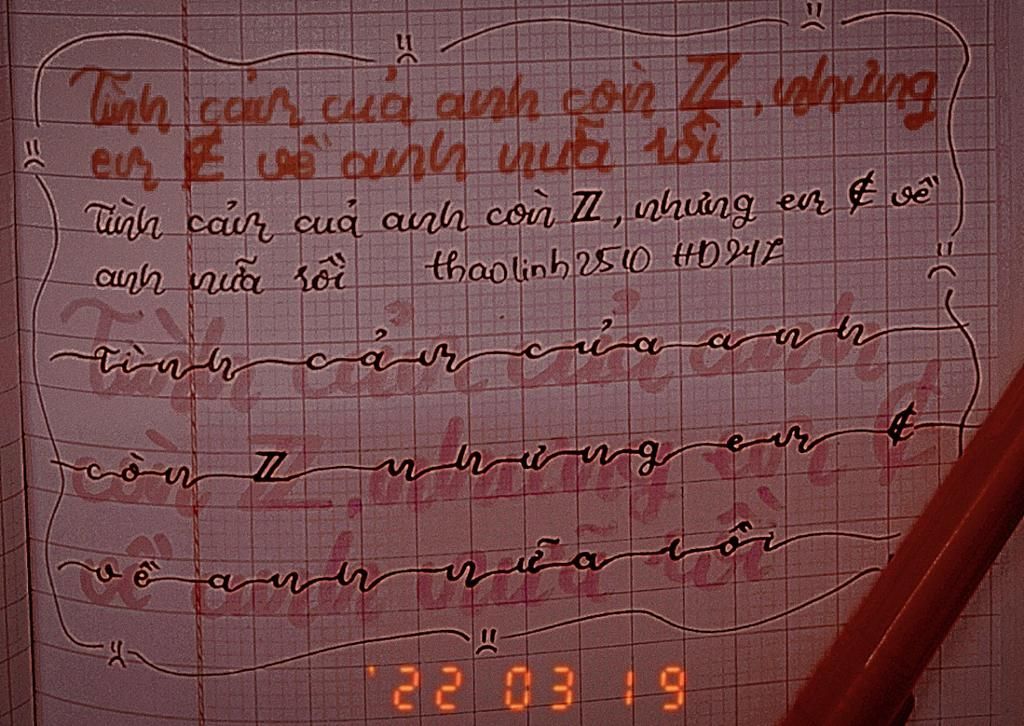 Tình cảm cuả anh còn ℤ, nhưng
em ∉ về anh nữa rồi
Tình cảm cuả anh còn ℤ, nhưng em ∉ về
anh nữa rồi thaolinh2510 HD24Z
Tình cảm của anh
Tình cảm của anh
còn ℤ nhưng em ∉
còn ℤ, nhưng em ∉
về anh nữa rồi
về anh nữa rồi
'22 03 19